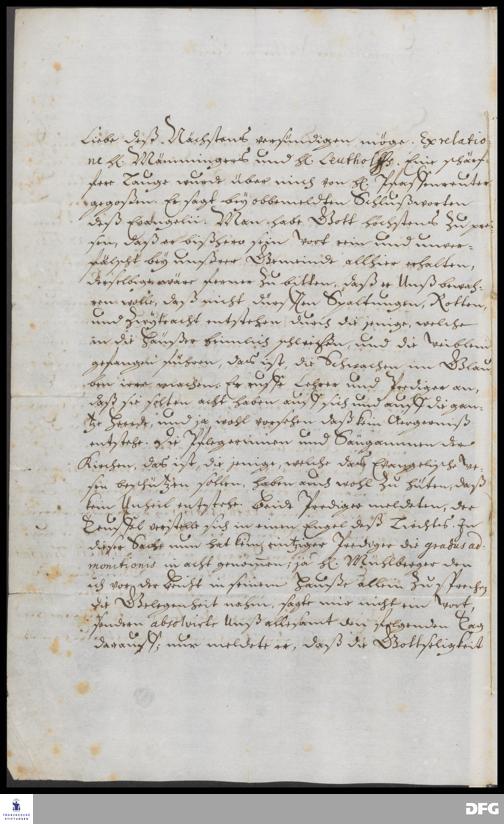 Liebe deß Nächstens versündigen möge. Ex relatio
ne H. Männingers und H. Leutholffs. Eine schärf
fere Lauge wurde über mich von H. Pfaffenreuter
gegoßen. Er sagt bey obbemeldten Schlußworten
deß Evangelii. Man habe Gott höchstens zu prei
sen, daß er bißhero sein Wort rein und unver-
fälscht bey unßerer Gemeinde allhier erhalten,
derselbige wäre ferner zu bitten, daß er Unß bewah-
ren wolle, daß nicht Spaltungen, Rotten,
und Zwytracht entstehen durch die jenige, welche
in die Häußer heimlich schleichen, und die Weiblein
gefangen führen, das ist, die Schwachen im Glau
ben irre machen. Er ruffe Lehrer und Prediger an,
daß sie solten acht haben auff sich und auff die gan-
tze Heerde, und ja wohl vorsehen daß kein Aergerniß
entstehe. Die Pflegerinnen und Säugammen der
Kirchen, das ist, die jenige, welche das Evangelische We-
sen beschützen sollen, haben auch wohl zu hüten, daß
kein Unheil entstehe. Beide Prediger meldeten, der
Teuffel verstelle sich in einen Engel deß Liechts. In
dieser Sache nun hat kein eintziger Prediger die gradus ad
monitionis in acht genommen; ja H. Mühlberger den
ich vor der Beicht in seinem Hauße allein zu sprechen
die Gelegenheit nahm, sagte mir nicht ein Wort,
sondern absolvirte Unß allesamt den folgenden Tag
darauff; nur meldete er, daß die Gottseligkeit
FRANCKESCHE
STIFTUNGEN
DFG